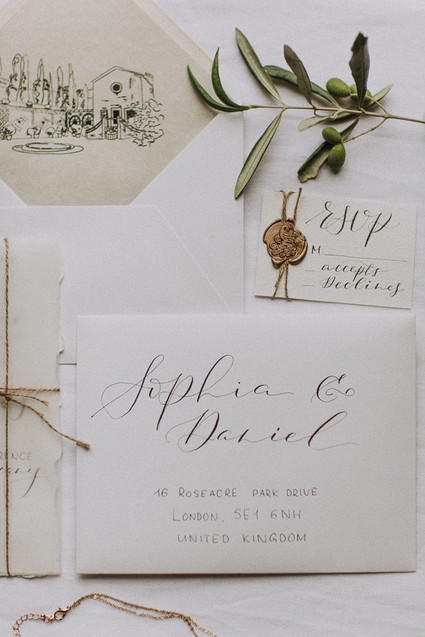 RSVP
M
accepts
Declines
Sophia &
Daniel
16 ROSEACRE PARK DRIVE
LONDON, SE1 6NH
UNITED KINGDOM